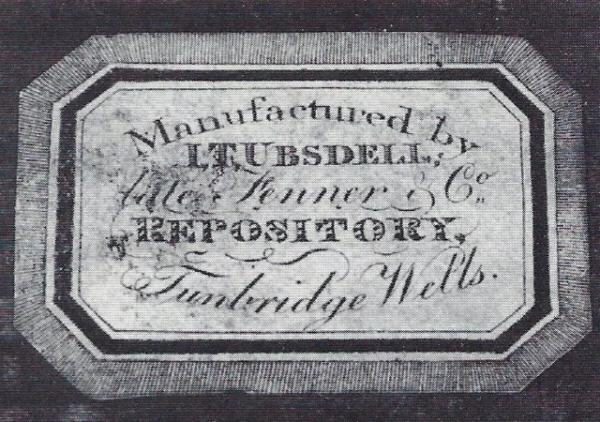 Manufactured by
I,T,UBSDELL;
late Fenner & Co.
REPOSITORY,
Tunbridge Wells.